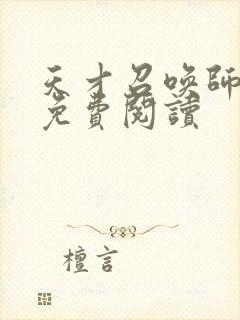 天才召喚師
免費閱讀
檀言